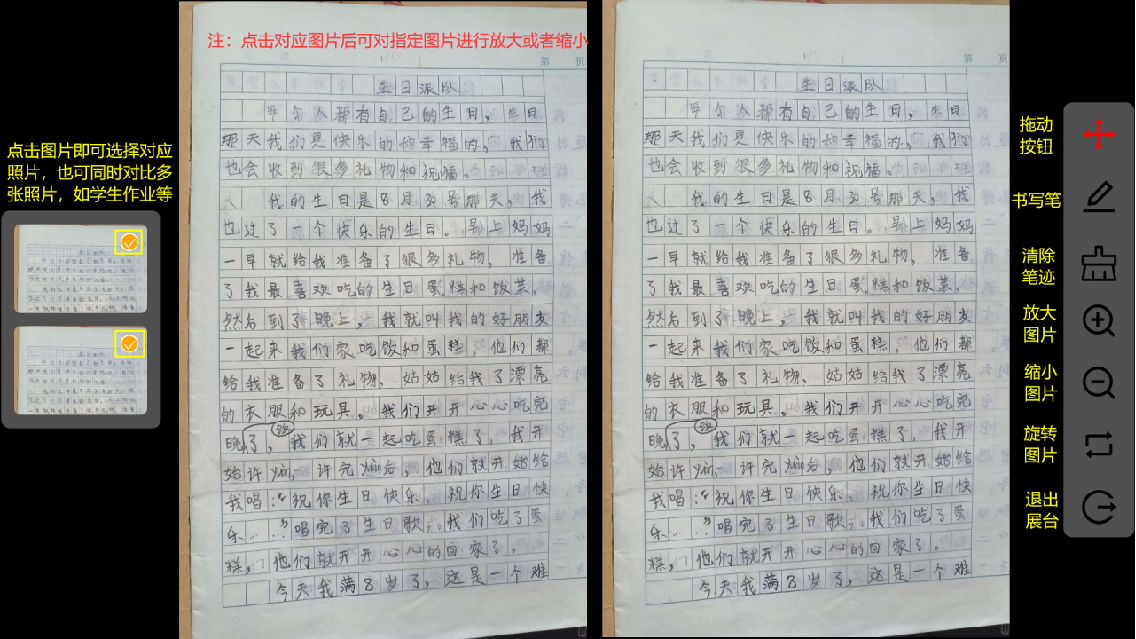 注：点击对应图片后可对指定图片进行放大或者缩小
点击图片即可选择对应
照片，也可同时对比多
张照片，如学生作业等
第 页
生日派队
每个人都有自己的生日，生日
那天我们是快乐的和幸福的，我们
也会收到很多礼物和祝福。
我的生日是8月30号那天，我
也过了一个快乐的生日。早上妈妈
一早就给我准备了很多礼物，准备
了我最喜欢吃的生日蛋糕和饭菜，
然后到了晚上，我就叫我的好朋友
一起来我们家吃饭和蛋糕，他们都
给我准备了礼物，姑姑给我了漂亮
的衣服和玩具。我们开开心心吃完
晚饭了，我们就一起吃蛋糕了，我开
始许，许完后，他们就开始给
我唱：“祝你生日快乐，祝你生日快
乐……”唱完了生日歌，我们吃了蛋
糕，他们就开开心心的回家了。
今天我满8岁了，这是一个难
第 页
生日派队
每个人都有自己的生日，生日
那天我们是快乐的和幸福的，我们
也会收到很多礼物和祝福。
我的生日是8月30号那天，我
也过了一个快乐的生日。早上妈妈
一早就给我准备了很多礼物，准备
了我最喜欢吃的生日蛋糕和饭菜，
然后到了晚上，我就叫我的好朋友
一起来我们家吃饭和蛋糕，他们都
给我准备了礼物，姑姑给我了漂亮
的衣服和玩具。我们开开心心吃完
晚饭了，我们就一起吃蛋糕了，我开
始许，许完后，他们就开始给
我唱：“祝你生日快乐，祝你生日快
乐……”唱完了生日歌，我们吃了蛋
糕，他们就开开心心的回家了。
今天我满8岁了，这是一个难
拖动
按钮
书写笔
清除
笔迹
放大
图片
缩小
图片
旋转
图片
退出
展台